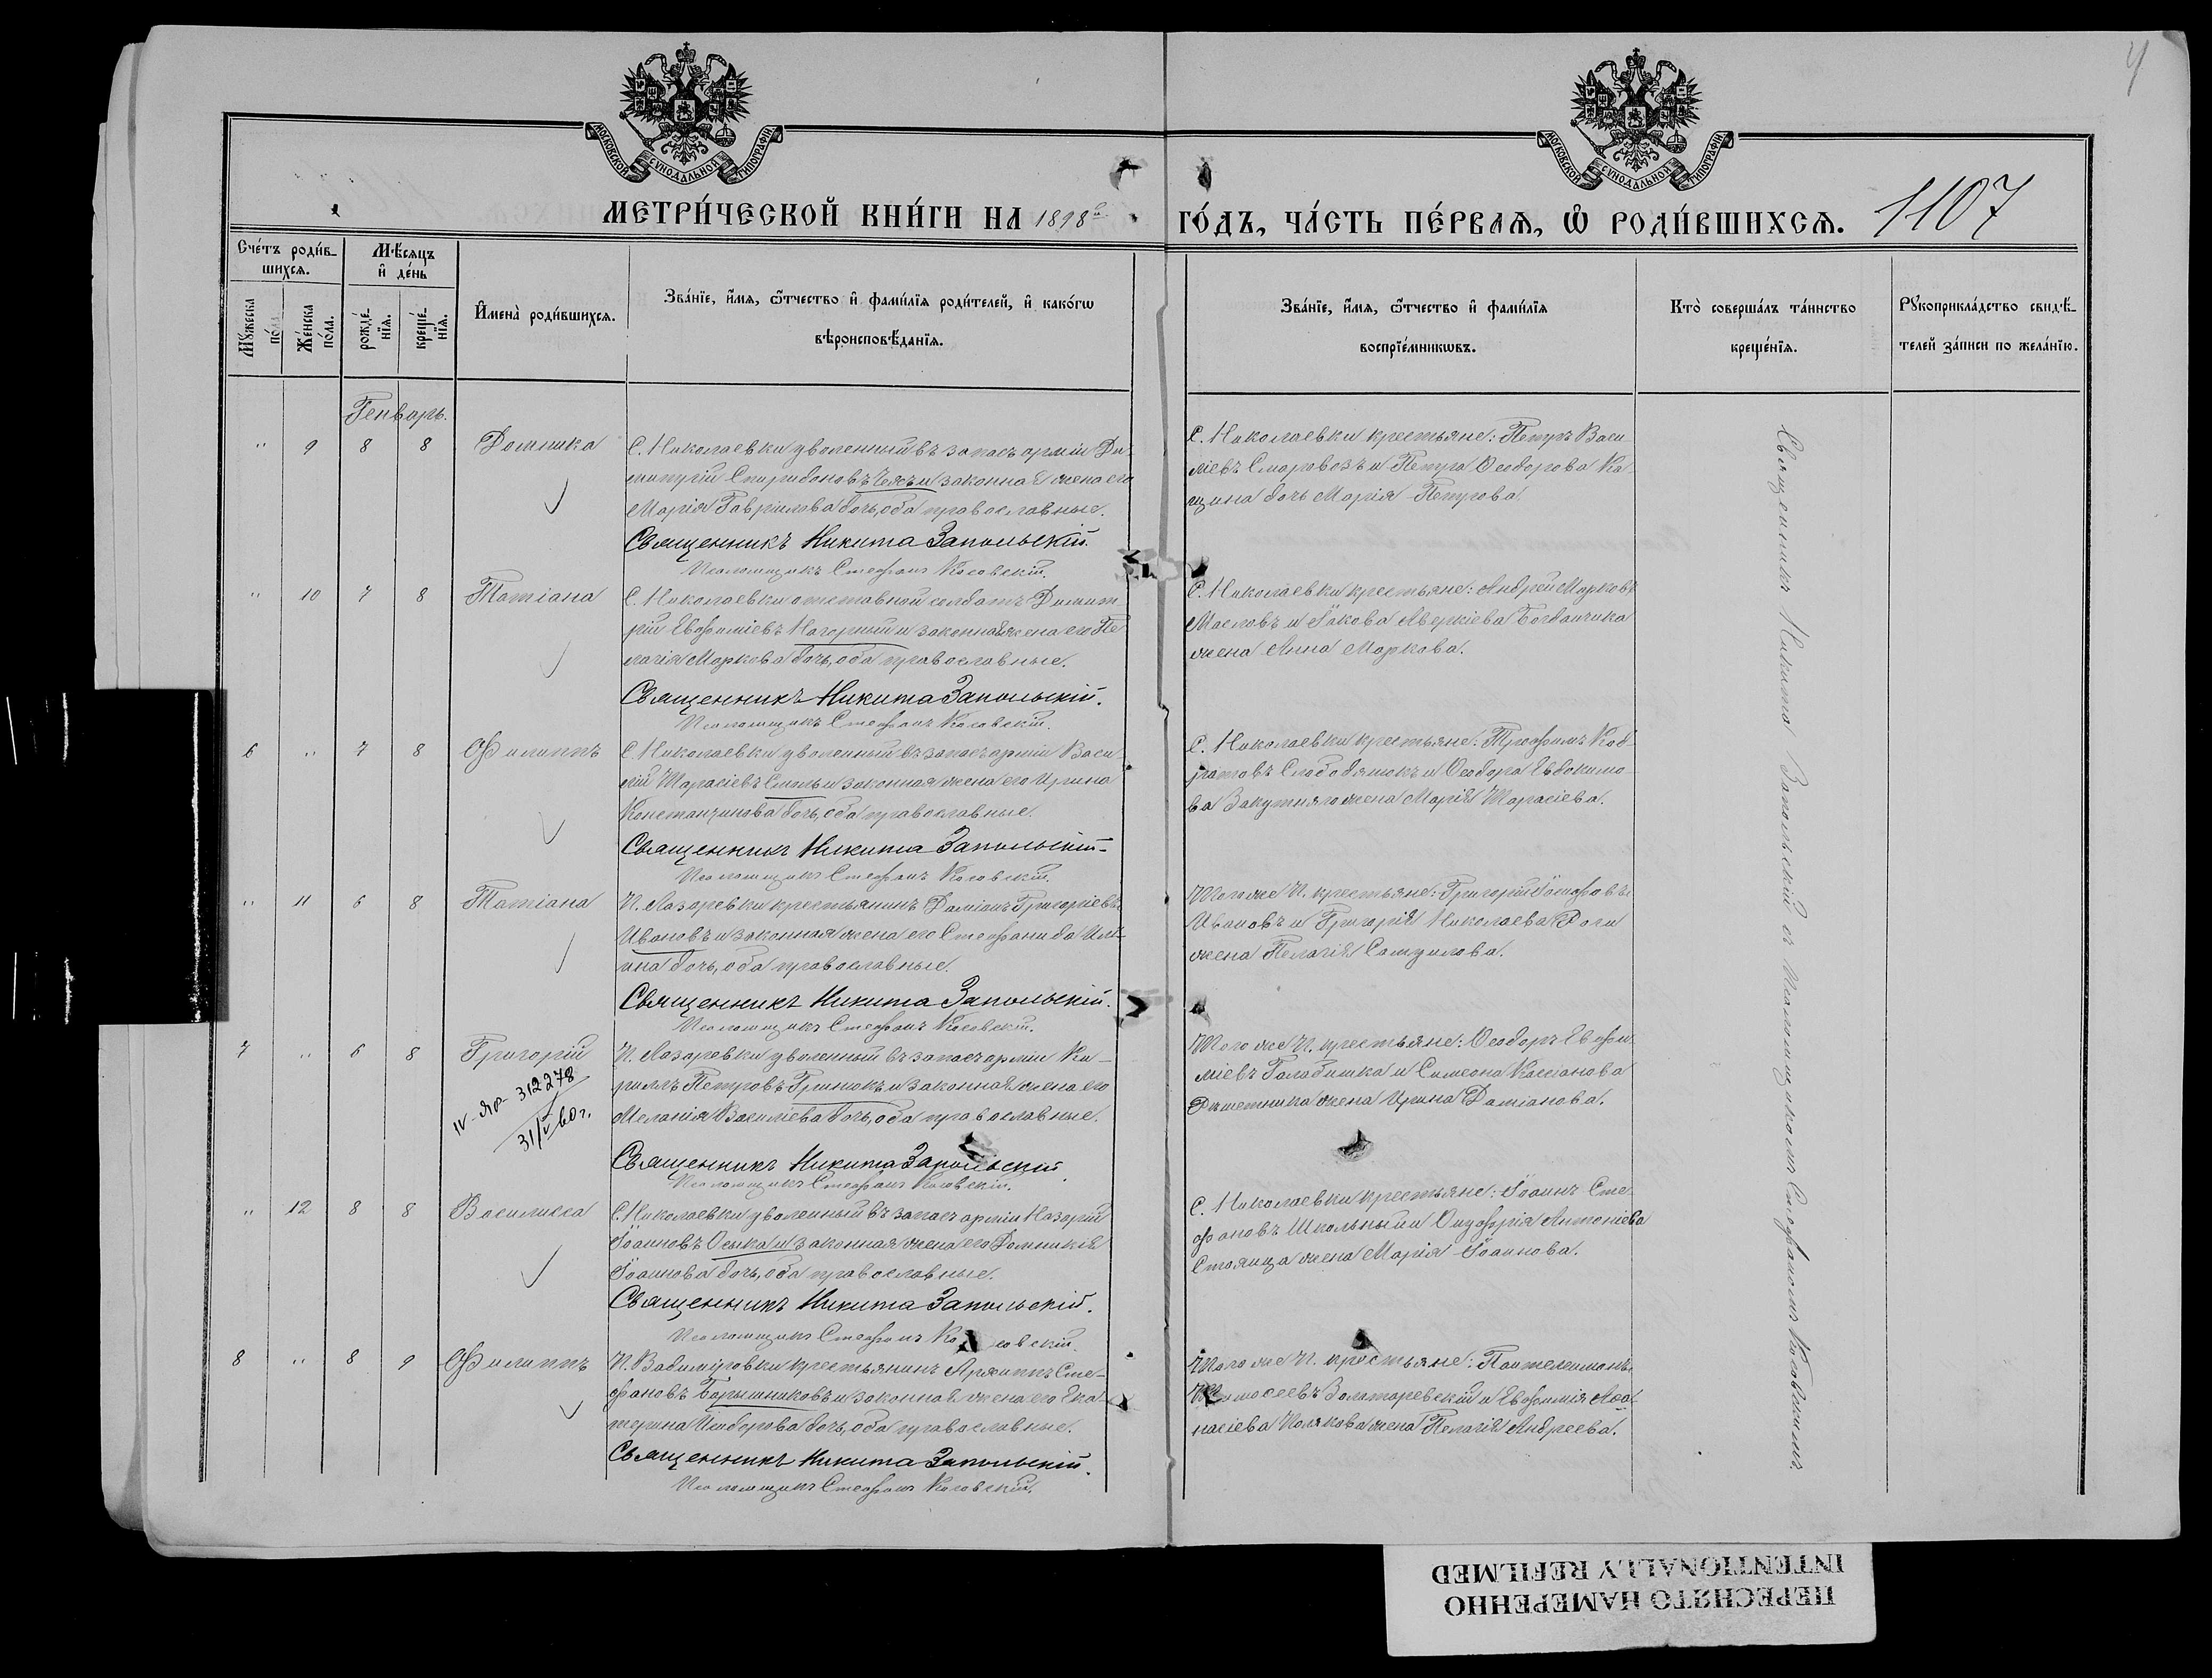 МОСКОВСКОЙ СѴНОДАЛЬНОЙ ТИПОГРАФІИ
МОСКОВСКОЙ СѴНОДАЛЬНОЙ ТИПОГРАФІИ
МЕТРИ́ЧЕСКОЙ КНИ́ГИ НА 1898й ГО́ДЪ, ЧА́СТЬ ПЕ́РВАѦ, Ѡ҆ РОДИ́ВШИХСѦ. 1107
Сче́тъ роди́в-
шихсѧ.
Мѹ́жеска по́ла.
Же́нска по́ла.
Мѣ́сѧцъ
и҆ де́нь
рожде́-
нїѧ.
креще́-
нїѧ.
И҆мена̀ роди́вшихсѧ.
Зва́нїе, и҆́мѧ, ѻ҆́тчество и҆ фами́лїѧ роди́телей, и҆ како́гѡ
вѣроисповѣ́данїѧ.
Зва́нїе, и҆́мѧ, ѻ҆́тчество и҆ фами́лїѧ
воспрїе́мникѡвъ.
Кто̀ соверша́лъ та́инство
креще́нїѧ.
Рꙋкоприкла́дство свидѣ́-
телей за́писи по жела́нїю.
Генварь.
" 9 8 8 Домника
С. Николаевки уволенный въ запасъ арміи Ди-
митрій Спиридоновъ Чехъ и законная жена его
Марія Гавріилова дочь, оба православные.
Священникъ Никита Запольскій.
Псаломщикъ Стефанъ Косовскій.
С. Николаевки крестьяне: Петръ Васи
ліевъ Смаровозъ и Петра Ѳеодорова Ка
щина дочь Марія Петрова
" 10 7 8 Татіана
С. Николаевки отставной солдатъ Димит
рій Евфиміевъ Нагорный и законная жена его Пе
лагія Маркова дочь, оба православные.
Священникъ Никита Запольскій.
Псаломщикъ Стефанъ Косовскій.
С. Николаевки крестьяне: Андрей Марковъ
Масловъ и Іакова Аверкіева Богданчика
жена Анна Маркова.
6 " 7 8 Филиппъ
С. Николаевки уволенный въ запасъ арміи Васи
лій Тарасіевъ Смаль и законная жена его Ирина
Константинова дочь, оба православные.
Священникъ Никита Запольскій.
Псаломщикъ Стефанъ Косовскій.
С. Николаевки крестьяне: Трофимъ Код
ратовъ Слободянюкъ и Ѳеодора Евдокимо
ва Закутняго жена Марія Тарасіева.
" 11 6 8 Татіана
П. Лазаревки крестьянинъ Даміанъ Григоріевъ
Ивановъ и законная жена его Стефанида Иль-
ина дочь, оба православные.
Священникъ Никита Запольскій.
Псаломщикъ Стефанъ Косовскій.
Того же П. крестьяне: Григорій Іосифовъ
Ивановъ и Григорія Николаева Роги
жена Пелагія Самуилова.
7 " 6 8 Григорій
IV-ЯР 312278
31/V 60 г.
П. Лазаревки уволенный въ запасъ арміи Ки-
риллъ Петровъ Гринюкъ и законная жена его
Меланія Василіева дочь, оба православные.
Священникъ Никита Запольскій.
Псаломщикъ Стефанъ Косовскій.
Того же П. крестьяне: Ѳеодоръ Евфи
міевъ Галабишка и Симеона Кассіанова
Рѣшетника жена Ирина Даміанова.
" 12 8 8 Василисса
С. Николаевки уволенный въ запасъ арміи Назарій
Іоанновъ Осыка и законная жена его Домникія
Іоаннова дочь, оба православные.
Священникъ Никита Запольскій.
Псаломщикъ Стефанъ Косовскій.
С. Николаевки крестьяне: Іоаннъ Сте
фановъ Школьный и Онуфрія Антоніева
Стоянца жена Марія Іоаннова.
8 " 8 9 Филиппъ
П. Вадиміровки крестьянинъ Архиппъ Сте-
фановъ Барышниковъ и законная жена его Ека-
терина Исидорова дочь, оба православные.
Священникъ Никита Запольскій.
Псаломщикъ Стефанъ Косовскій.
Того же П. крестьяне: Пантелеимонъ
Тимоѳеевъ Золотаревскій и Евфимія Аѳа
насіева Полякова жена Пелагія Андреева.
Священникъ Никита Запольскій съ Псаломщикомъ Стефаномъ Косовскимъ.
ПЕРЕСНЯТО НАМЕРЕННО
INTENTIONALLY REFILMED